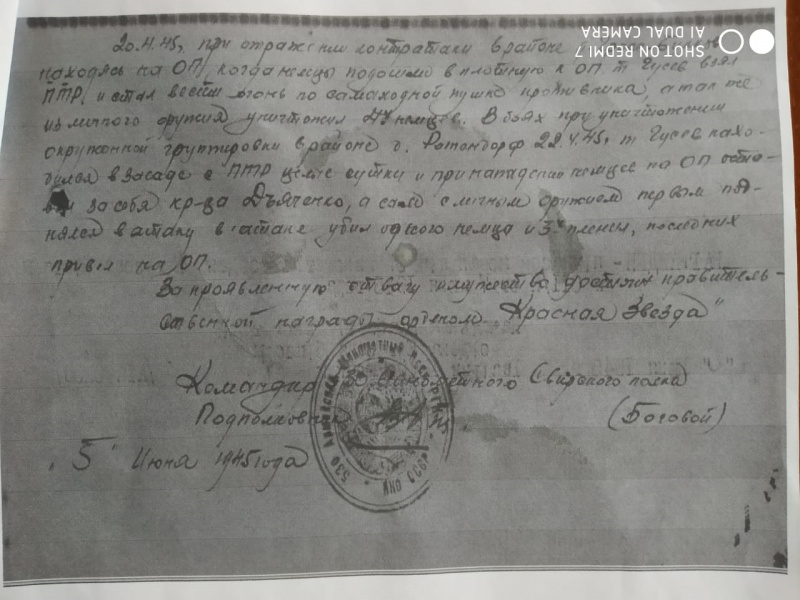 20.4.45г при отражении контратаки в районе
находясь на ОП, когда немцы подошли вплотную к ОП. т Гусев взял
ПТР, и стал вести огонь по самоходной пушке противника, а так же
из личного оружия уничтожил немцев. В боях при уничтожении
окруженной группировки в районе 22.4.45г т Гусев нахо-
дился в засаде с ПТР целые сутки и при нападении немцев на ОП оста-
вил за себя кр-ца Дьяченко, а сам с личным оружием первым под-
нялся в атаку в атаке убил одного немца и 3х пленил, последних
привел на ОП.
За проявленную отвагу и мужество достоин правитель-
ственной награды орденом „Красная Звезда"
Командир Минометного Свирского полка
Подполковник (Боговой)
„5" Июня 1945 года
530 Минометный
SHOT ON REDMI 7
AI DUAL CAMERA